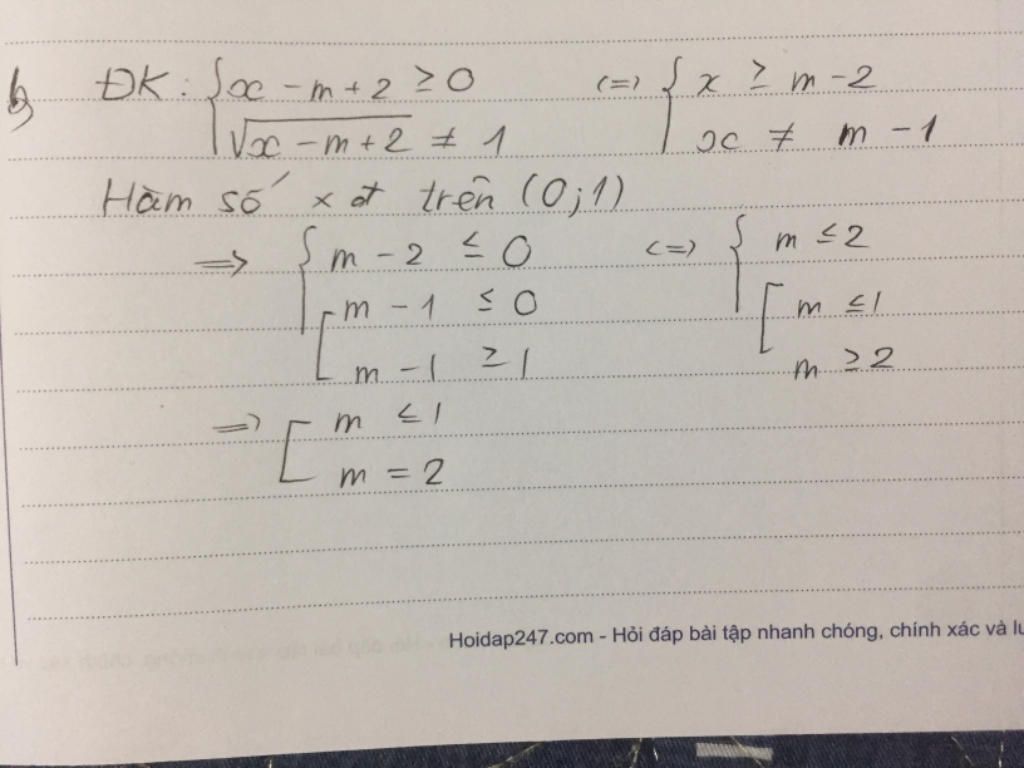 b) ĐK: { x - m + 2 ≥ 0 <=> { x ≥ m - 2
√(x - m + 2) ≠ 1 x ≠ m - 1
Hàm số xđ trên (0;1)
=> { m - 2 ≤ 0 <=> { m ≤ 2
[ m - 1 ≤ 0 [ m ≤ 1
m - 1 ≥ 1 m ≥ 2
=> [ m ≤ 1
m = 2
Hoidap247.com - Hỏi đáp bài tập nhanh chóng, chính xác và